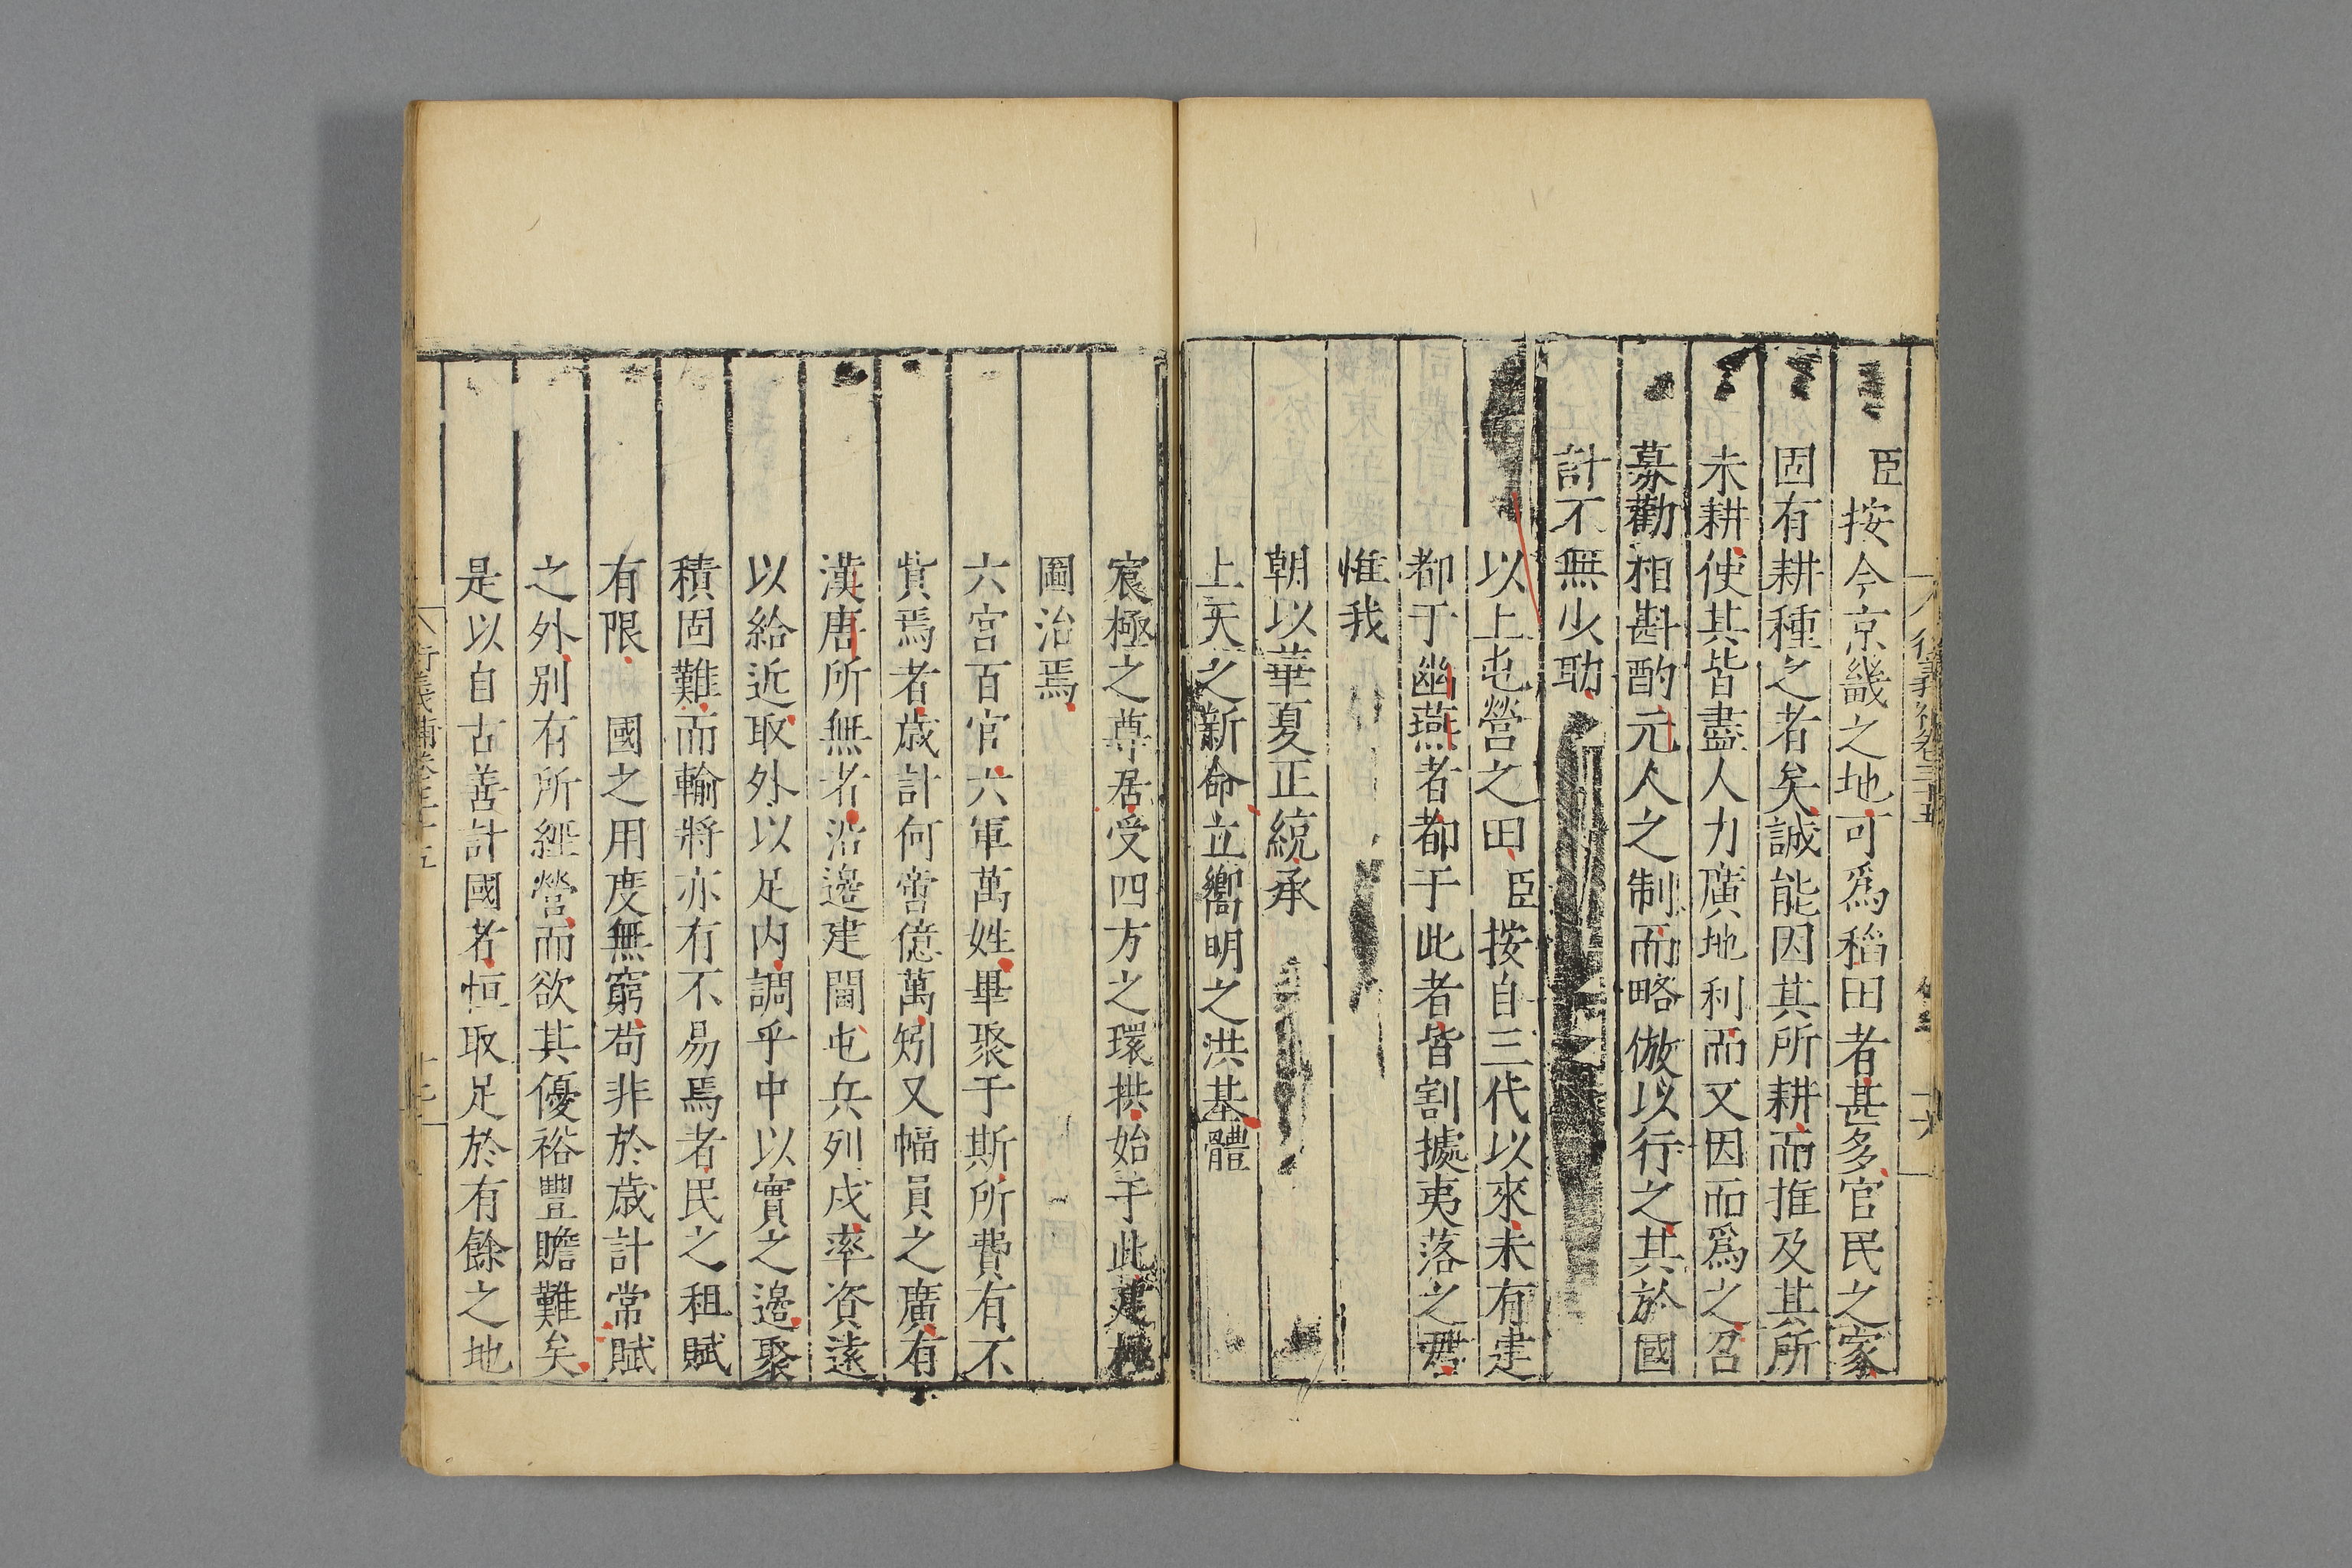 臣按今京畿之地可爲稻田者甚多官民之家
固有耕種之者矣誠能因其所耕而推及其所
未耕使其皆盡人力廣地利而又因而爲之召
募勸相斟酌元人之制而略倣以行之其於國
計不無少助
以上屯營之田臣按自三代以來未有建
都于幽燕者都于此者皆割據夷落之君
惟我
朝以華夏正統承
上天之新命立嚮明之洪基體
宸極之尊居受四方之環拱始于此建極
圖治焉
六宮百官六軍萬姓畢聚于斯所費有不
貲焉者歳計何啻億萬矧又幅員之廣有
漢唐所無者沿邊建閫屯兵列戍率資遠
以給近取外以足内調乎中以實之邊聚
積固難而輸將亦有不易焉者民之租賦
有限國之用度無窮苟非於歳計常賦
之外别有所經營而欲其優裕豐贍難矣
是以自古善計國者恒取足於有餘之地